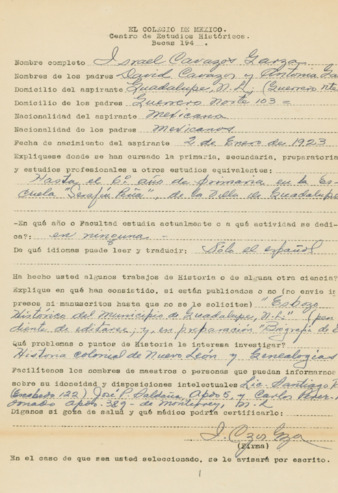 EL COLEGIO DE MEXICO.
Centro de Estudios Históricos.
Becas 194 .
Nombre completo Israel Cavazos Garza
Nombres de los padres David Cavazos y Antonia Ga
Domicilio del aspirante Guadalupe, N. L. (Guerrero Nte
Domicilio de los padres Guerrero Norte 103
Nacionalidad del aspirante Mexicana
Nacionalidad de los padres Mexicanos
Fecha de nacimiento del aspirante 2 de Enero de 1923
Explíquese donde se han cursado la primaria, secundaria, preparatoria
y estudios profesionales u otros estudios equivalentes:
"Hasta el 6º año de primaria en la Es-
cuela Serafín Peña", de la Villa de Guadalupe
-En qué año o Facultad estudia actualmente o a qué actividad se dedi-
ca?: en ninguna -
De qué idiomas puede leer y traducir: Sólo el español
Ha hecho usted algunos trabajos de Historia o de alguna otra ciencia?
Explique en qué han consistido, si están publicados o no (no envíe im
presos ni manuscritos hasta que no se le solicite) "Esbozo
Histórico del Municipio de Guadalupe, N.L." (pen
diente de editarse; y, en preparación "Biografí de
Qué problemas o puntos de Historia le interesa investigar?
Historia colonial de Nuevo León y Genealogías
Facilítenos los nombres de maestros o personas que puedan informarnos
sobre su idoneidad y disposiciones intelectuales Lic. Santiago R
122) José P. Saldaña, Apdo 5, y Carlos Pérez-
Apdo. 389 - de Monterrey, N. L.
Díganos si goza de salud y qué médico podría certificarlo:
I. Czos Gza
(Firma)
En el caso de que sea usted seleccionado, se le avisará por escrito.